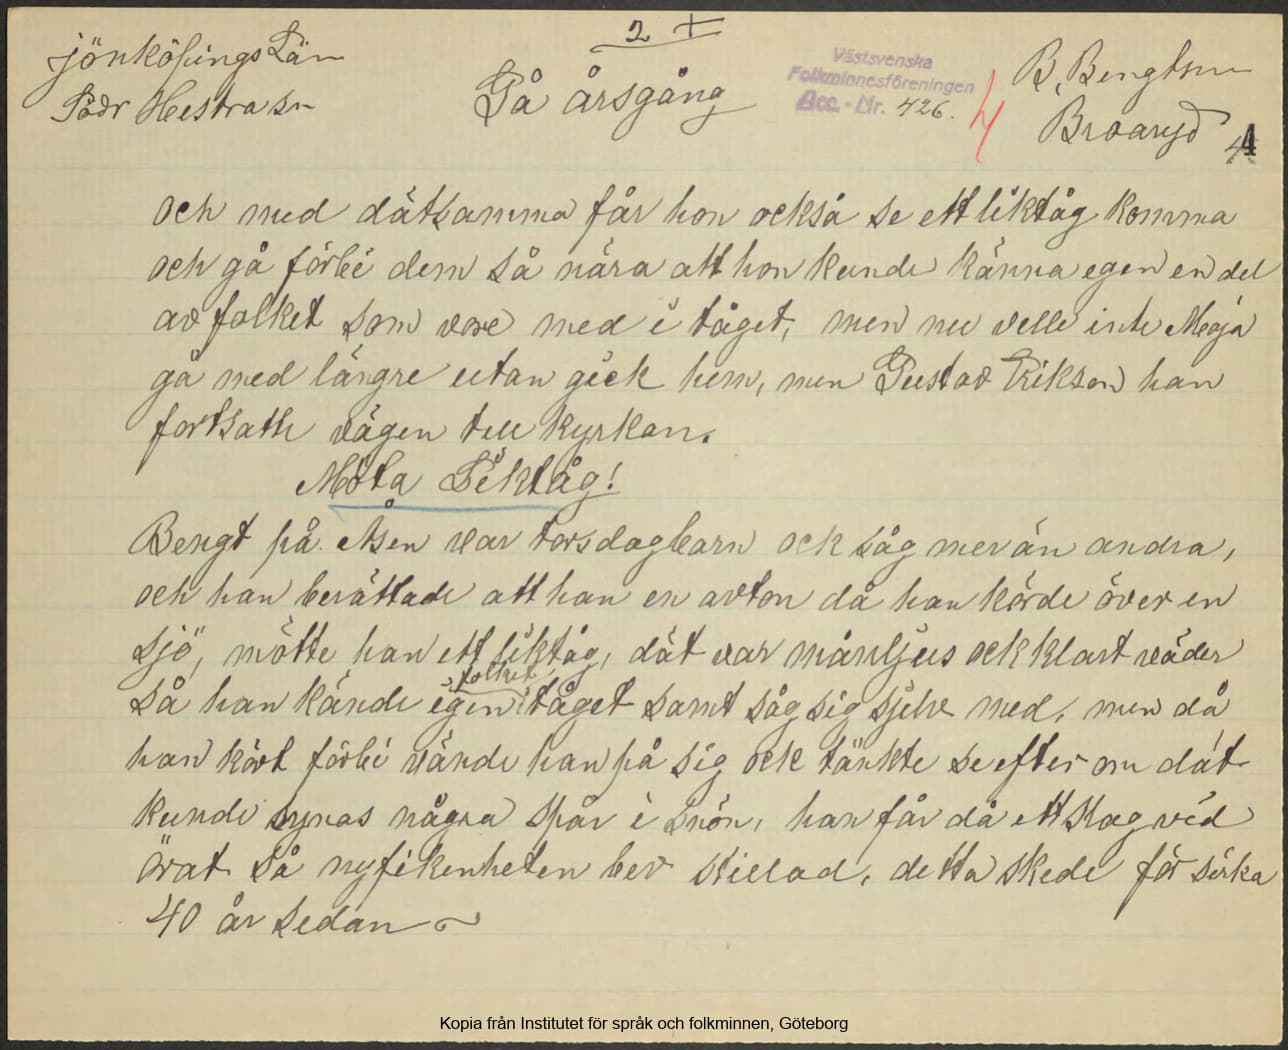 2 +
Jönköpings Län
Södr Hestra sn
Gå årsgång
Västsvenska
Folkminnesföreningen
Acc. - Nr. 426.
B. Bengtson
Broaryd
4
och med dätsamma får hon också se ett liktåg komma
och gå förbi dem så nära att hon kunde känna egen en del
av folket som vore med i tåget, men nu velle inte Maja
gå med längre utan gick hem, men Gustav Erikson han
fortsatte vägen tell kyrkan.
Möta Liktåg!
Bengt på Åsen var torsdagbarn ock såg mer än andra,
och han berättade att han en avton då han körde över en
sjö, mötte han ett liktåg, dät var månljus ock klart väder
så han kände egen folket i tåget samt såg sig sjelv med, men då
han kört förbi vände han på sig ock tänkte se efter om dät
kunde synas några spår i snön, han får då ett slag vid
örat så nyfikenheten bev stillad, detta skede för sirka
40 år sedan
Kopia från Institutet för språk och folkminnen, Göteborg